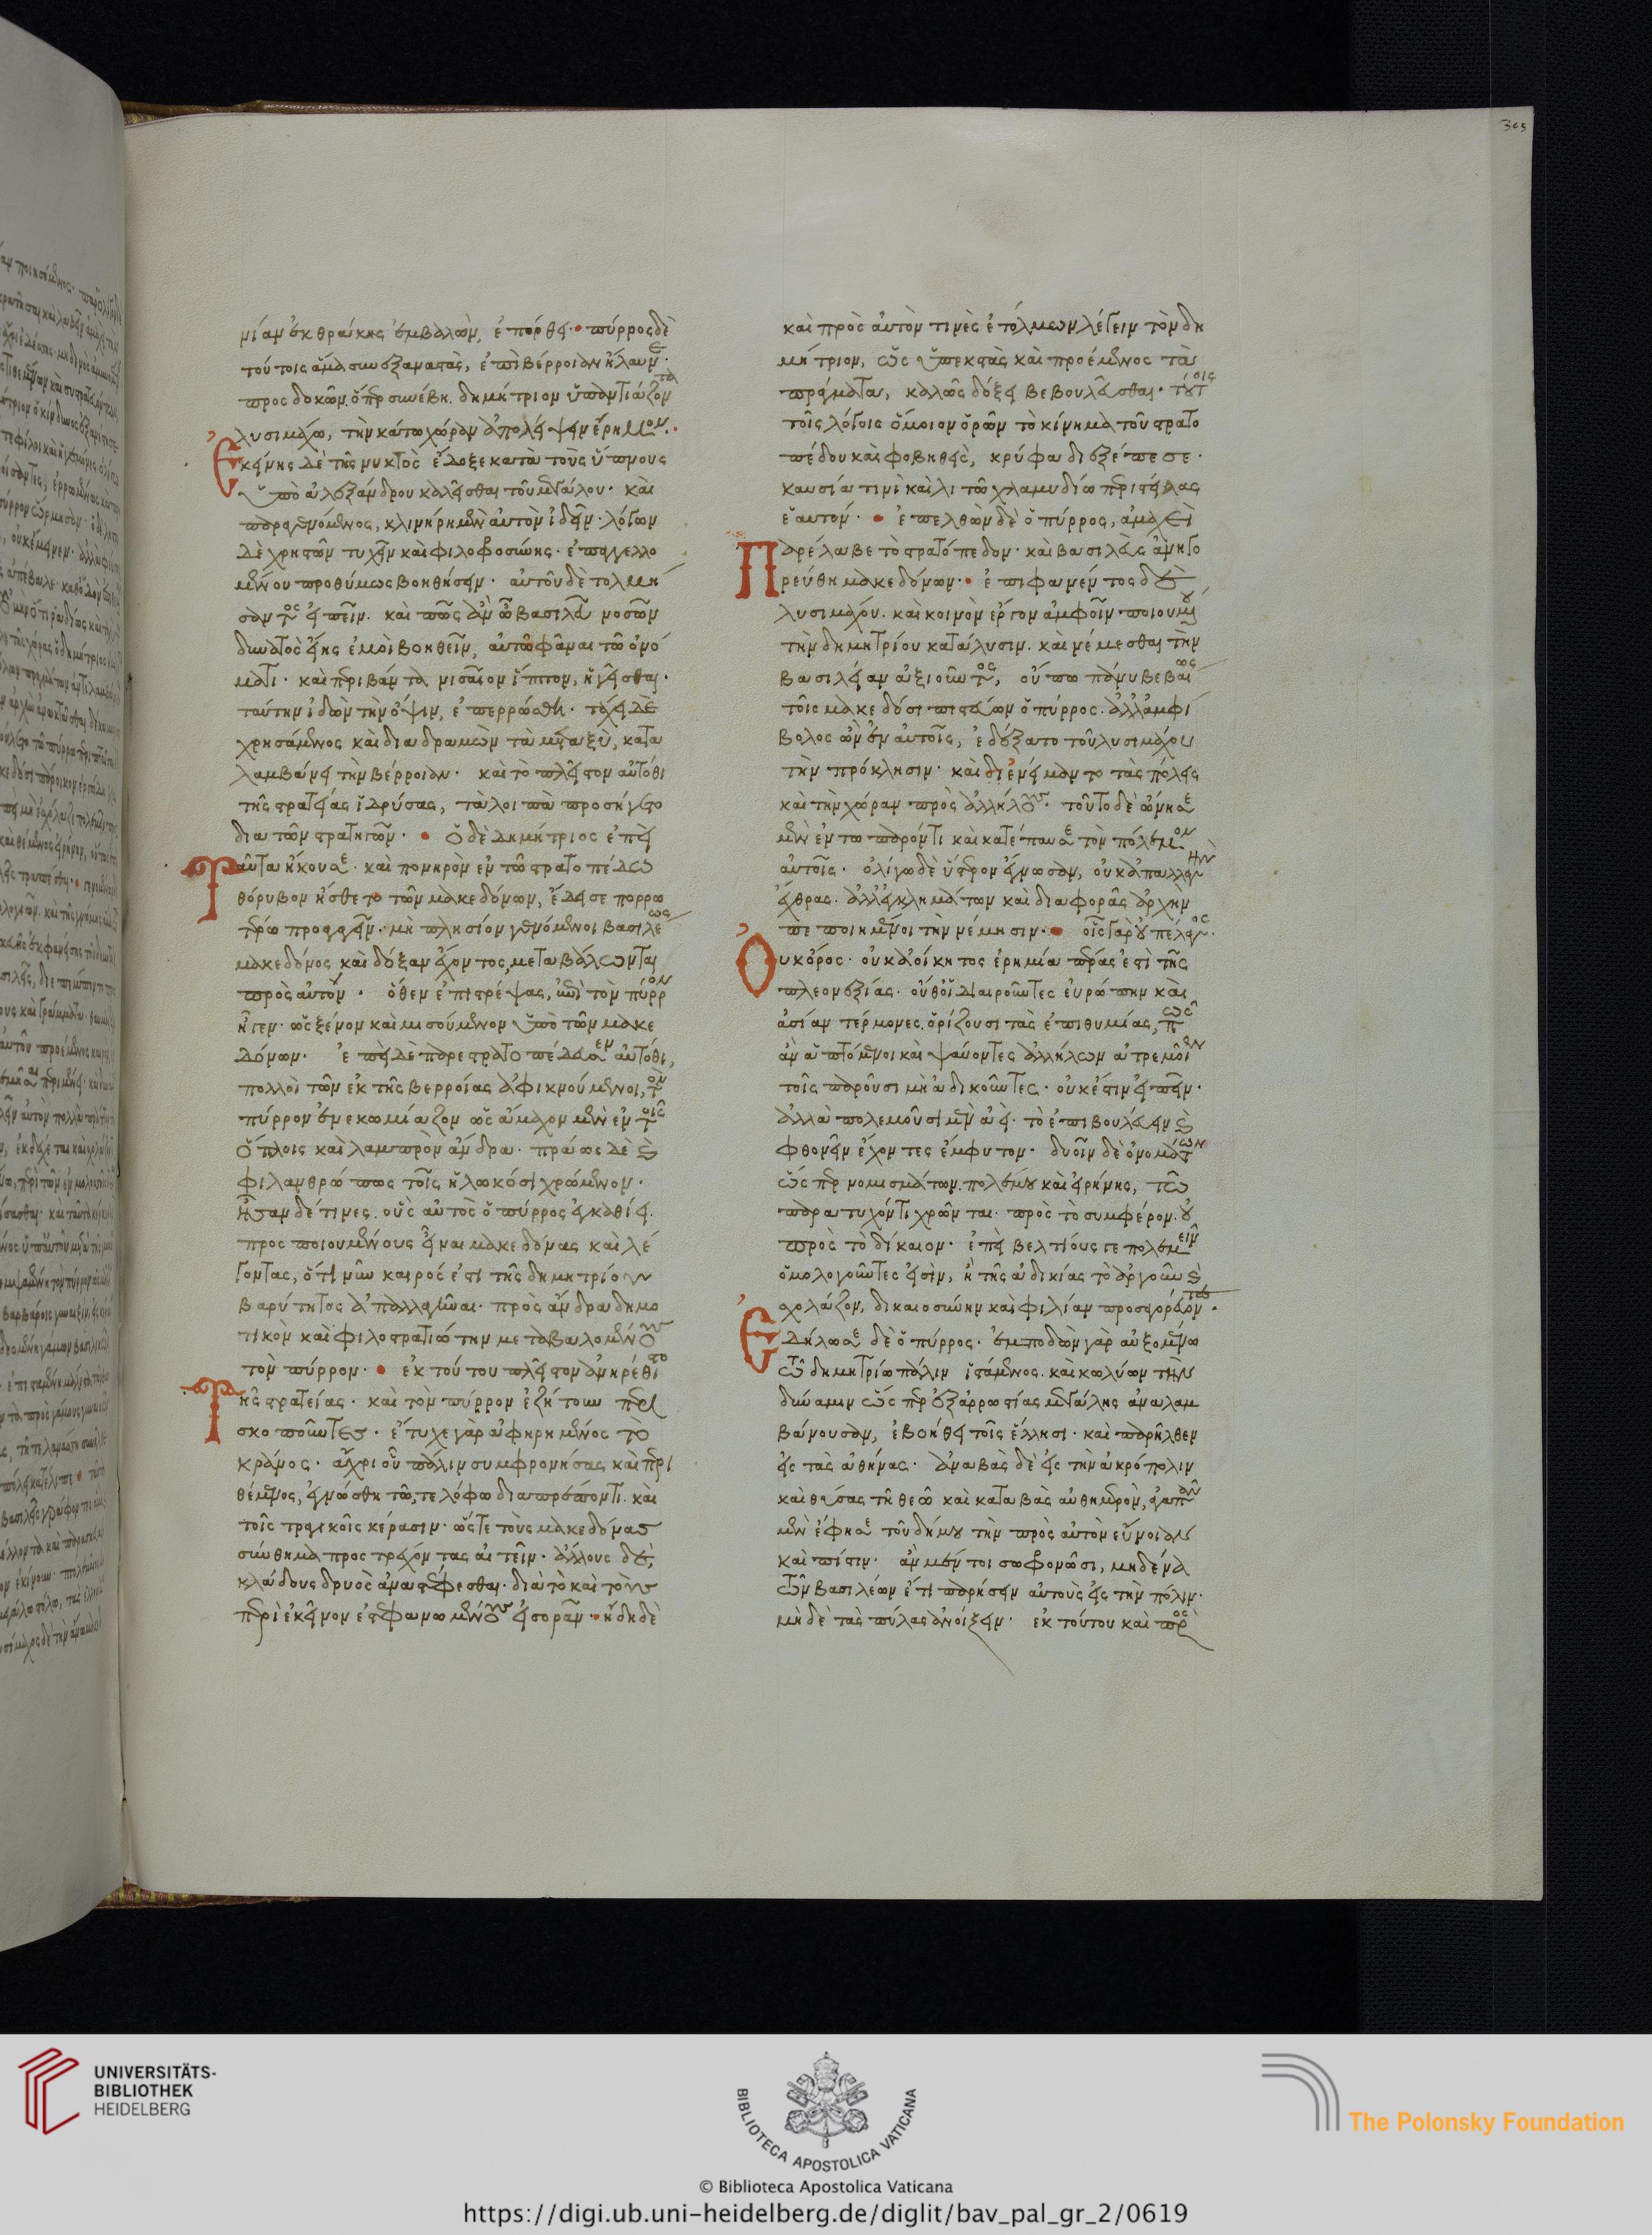 μίαν ἐκ θράκης ἐμβαλὼν, ἐπόρθει· πύρρος δὲ
τούτοις ἅμα συνεξαναστὰς, ἐπὶ βέρροιαν ἤλαυνε·
προσδοκῶν. ὅπερ συνέβη. δημήτριον ὑπαντιάζοντα
λυσιμάχω, τὴν κάτω χώραν ἀπολείψειν ἔρημον.
Εκείνης δὲ τῆς νυκτὸς ἔδοξε κατὰ τοὺς ὕπνους
ὑπὸ ἀλεξάνδρου καλεῖσθαι τοῦ μεγάλου· καὶ
παραγενόμενος, κλινήρη μὲν αὐτὸν ἰδεῖν· λόγων
δὲ χρηστῶν τυχεῖν καὶ φιλοφροσύνης· ἐπαγελλο
μένου προθύμως βοηθήσειν· αὐτοῦ δὲ τολμή
σαντος εἰπεῖν. καὶ πῶς ἂν ὦ βασιλεῦ νοσῶν
δυνατὸς εἴης ἐμοὶ βοηθεῖν, αὐτῶ φάναι τῶ ὀνό
ματι· καὶ περιβάντα νισαῖον ἵππον, ἡγεῖσθαι·
ταύτην ἰδὼν τὴν ὄψιν, ἐπερρώσθη· τάχει δὲ
χρησάμενος καὶ διαδραμὼν τὰ μεταξὺ, κατα
λαμβάνει τὴν βέρροιαν· καὶ τὸ πλεῖστον αὐτόθι
τῆς στρατείας ἱδρύσας, τὰ λοιπὰ προσήγετο
διὰ τῶν στρατηγῶν· ὁ δὲ δημήτριος ἐπεὶ
Ταῦτα ἤκουσε· καὶ πονηρὸν ἐν τῶ στρατοπέδω
θόρυβον ἤσθετο τῶν μακεδόνων, ἔδεισε πορρω
τέρω προσαγεῖν· μὴ πλησίον γενόμενοι βασιλέως
μακεδόνος καὶ δόξαν ἔχοντος, μεταβάλωνται
πρὸς αὐτόν· ὅθεν ἐπιστρέψας, ἐπὶ τὸν πύρρον
ἦγεν· ὡς ξένον καὶ μισούμενον ὑπὸ τῶν μακε
δόνων· ἐπεὶ δὲ παρεστρατοπέδευσεν αὐτόθι,
πολλοὶ τῶν ἐκ τῆς βερροίας ἀφικνούμενοι, τὸν
πύρρον ἐνεκωμίαζον ὡς ἄμαχον μὲν ἐν τοῖς
ὅπλοις καὶ λαμπρὸν ἄνδρα· πράως δὲ καὶ
φιλανθρώπως τοῖς ἡλωκόσι χρώμενον·
Ἦσαν δέ τινες. οὓς αὐτὸς ὁ πύρρος ἐγκαθίει.
προσποιουμένους εἶναι μακεδόνας καὶ λέ
γοντας, ὅτι νῦν καιρός ἐστι τῆς δημητρίου
βαρύτητος ἀπαλλαγῆναι· πρὸς ἄνδρα δημο
τικὸν καὶ φιλοστρατιώτην μεταβαλομένους
τὸν πύρρον· ἐκ τούτου πλεῖστον ἀνηρέθιστο
Τῆς στρατείας· καὶ τὸν πύρρον ἐζήτουν περι
σκοποῦντες· ἔτυχε γὰρ ἀφηρημένος τὸ
κράνος· ἄχρι οὗ πάλιν συμφρονήσας καὶ περι
θέμενος, ἐγνώσθη τῶ, τε λόφω διαπρέποντι· καὶ
τοῖς τραγικοῖς κέρασιν· ὥστε τοὺς μακεδόνας
σύνθημα προστρέχοντας αἰτεῖν· ἄλλους δὲ,
κλάδους δρυὸς ἀναστέφεσθαι· διὰ τὸ καὶ τοὺς
περὶ ἐκεῖνον ἐστεφανωμένους εἰσορᾶν· ἤδη δὲ
καὶ πρὸς αὐτόν τινὲς ἐτόλμων λέγειν τὸν δη
μήτριον, ὡς ὑπεκστὰς καὶ προέμενος τὰ
πράγματα, καλῶς δόξει βεβουλεῦσθαι· τούτοις
τοῖς λόγοις ὅμοιον ὁρῶν τὸ κίνημα τοῦ στρατο
πέδου καὶ φοβηθεὶς, κρύφα διεξέπεσε·
καυσία τινὶ καὶ λιτῶ χλαμυδίω περιστείλας
ἑαυτόν· ἐπελθὼν δὲ ὁ πύρρος, ἀμαχεὶ
Παρέλαβε τὸ στρατόπεδον· καὶ βασιλεὺς ἀνηγο
ρεύθη μακεδόνων· ἐπιφανέντος δὲ
λυσιμάχου. καὶ κοινὸν ἔργον ἀμφοῖν ποιουμένου
τὴν δημητρίου κατάλυσιν. καὶ νέμεσθαι τὴν
βασιλείαν ἀξιοῦντος, οὔπω πάνυ βεβαίως
τοῖς μακεδόσι πιστεύων ὁ πύρρος. ἀλλ' ἀμφί
βολος ὢν ἐν αὐτοῖς, ἐδέξατο τοῦ λυσιμάχου
τὴν πρόκλησιν· καὶ διενείμαντο τὰς πόλεις
καὶ τὴν χώραν πρὸς ἀλλήλους· τοῦτο δὲ ὤνησε
μὲν ἐν τω παρόντι καὶ κατέπαυσε τὸν πόλεμον
αὐτοῖς· ὀλίγω δὲ ὕστερον ἔγνωσαν, οὐκ ἀπαλλαγὴν
ἔχθρας. ἀλλ' ἐγκλημάτων καὶ διαφορᾶς ἀρχὴν
πεποιημένοι τὴν νέμησιν· οἷς γὰρ οὐ πέλαγος.
Οὐκ ὄρος· οὐκ ἀοίκητος ἐρημία πέρας ἐστὶ τῆς
πλεονεξίας· οὐθ' οἱ διαιροῦντες εὐρώπην καὶ
ἀσίαν τέρμονες. ὁρίζουσι τὰς ἐπιθυμίας, πῶς
ἂν ἁπτόμενοι καὶ ψαύοντες ἀλλήλων ἀτρεμοῖεν
τοῖς παροῦσι μὴ ἀδικοῦντες· οὐκ ἔστιν εἰπεῖν·
ἀλλὰ πολεμοῦσι μὲν ἀεὶ· τὸ ἐπιβουλεύειν καὶ
φθονεῖν ἔχοντες ἔμφυτον· δυοῖν δὲ ὀνομάτων
ὥσπερ νομισμάτων. πολέμου καὶ εἰρήνης, τῶ
παρατυχόντι χρῶνται· πρὸς τὸ συμφέρον. οὐ
πρὸς τὸ δίκαιον· ἐπεὶ βελτίους γε πολεμεῖν
ὁμολογοῦντες εἰσὶν, ἢ τῆς ἀδικίας τὸ ἀργοῦν καὶ
σχολάζον, δικαιοσύνην καὶ φιλίαν προσαγορεύοντες·
Εδήλωσε δὲ ὁ πύρρος· ἐμποδὼν γὰρ αὐξομένω
τῶ δημητρίω πάλιν ἱστάμενος. καὶ κωλύων τὴν
δύναμιν ὥσπερ ἐξ ἀρρωστίας μεγάλης ἀναλαμ
βάνουσαν, ἐβοήθει τοῖς ἕλλησι· καὶ παρῆλθεν
εἰς τὰς ἀθήνας· ἀναβὰς δὲ εἰς τὴν ἀκρόπολιν
καὶ θύσας τῆ θεῶ καὶ καταβὰς αὐθημερὸν, ἀγαπᾶν
μὲν ἔφησε τοῦ δήμου τὴν πρὸς αὐτὸν εὔνοιαν
καὶ πίστιν· ἂν μέντοι σωφρονῶσι, μηδένα
τῶν βασιλέων ἔτι παρήσειν αὐτοὺς εἰς τὴν πόλιν·
μηδὲ τὰς πύλας ἀνοίξειν· ἐκ τούτου καὶ πρὸς
UNIVERSITÄTS-
BIBLIOTHEK
HEIDELBERG
BIBLIOTECA APOSTOLICA VATICANA
The Polonsky Foundation
© Biblioteca Apostolica Vaticana
https://digi.ub.uni-heidelberg.de/diglit/bav_pal_gr_2/0619